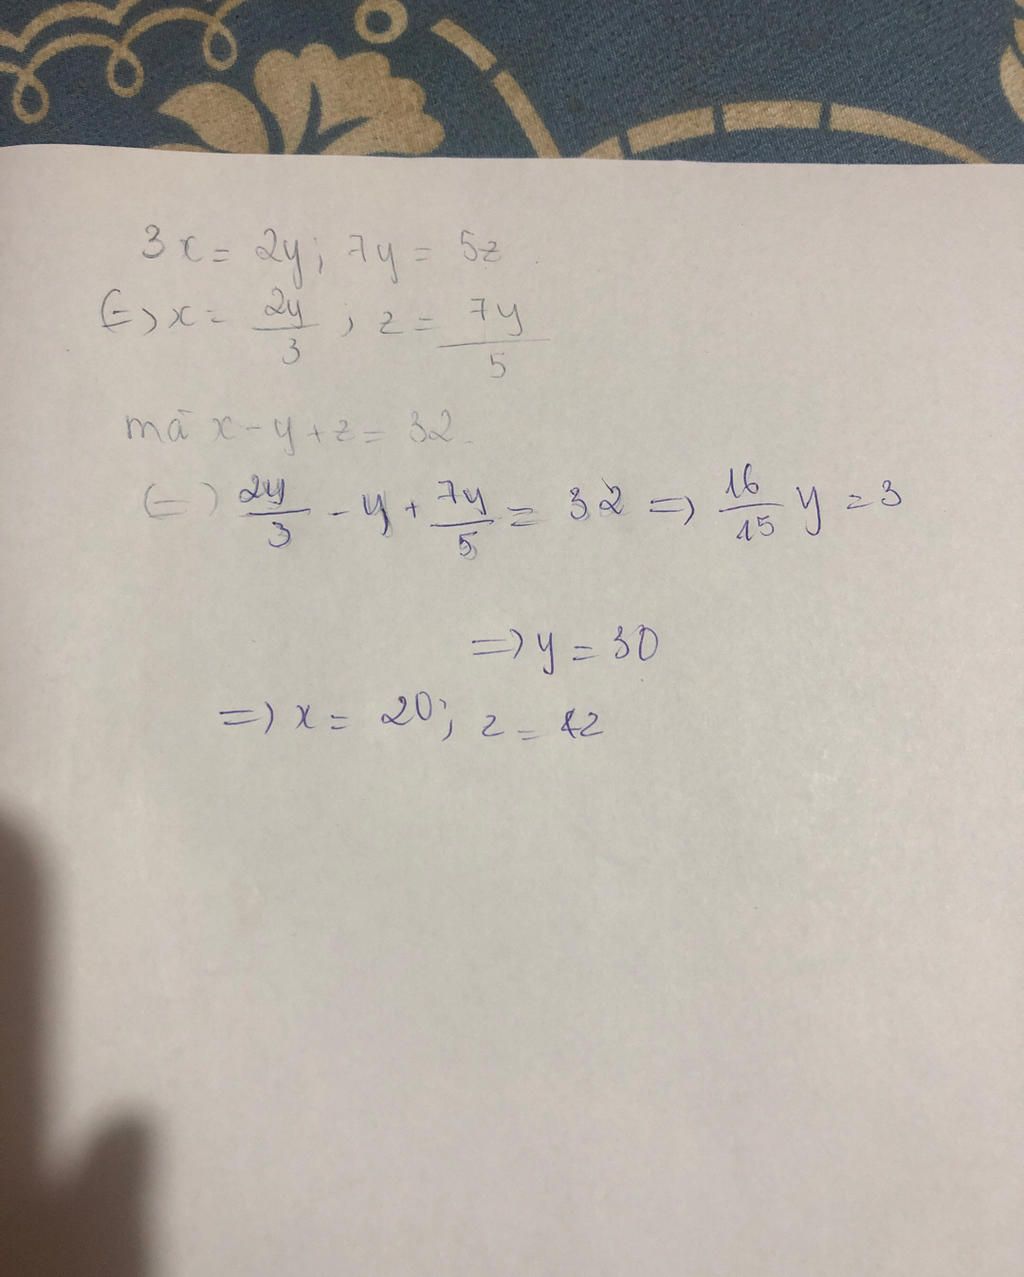 3x = 2y; 7y = 5z
(=) x = 2y/3 ; z = 7y/5
mà x - y + z = 32.
(=) 2y/3 - y + 7y/5 = 32 => 16/15 y = 3
=> y = 30
=> x = 20; z = 42